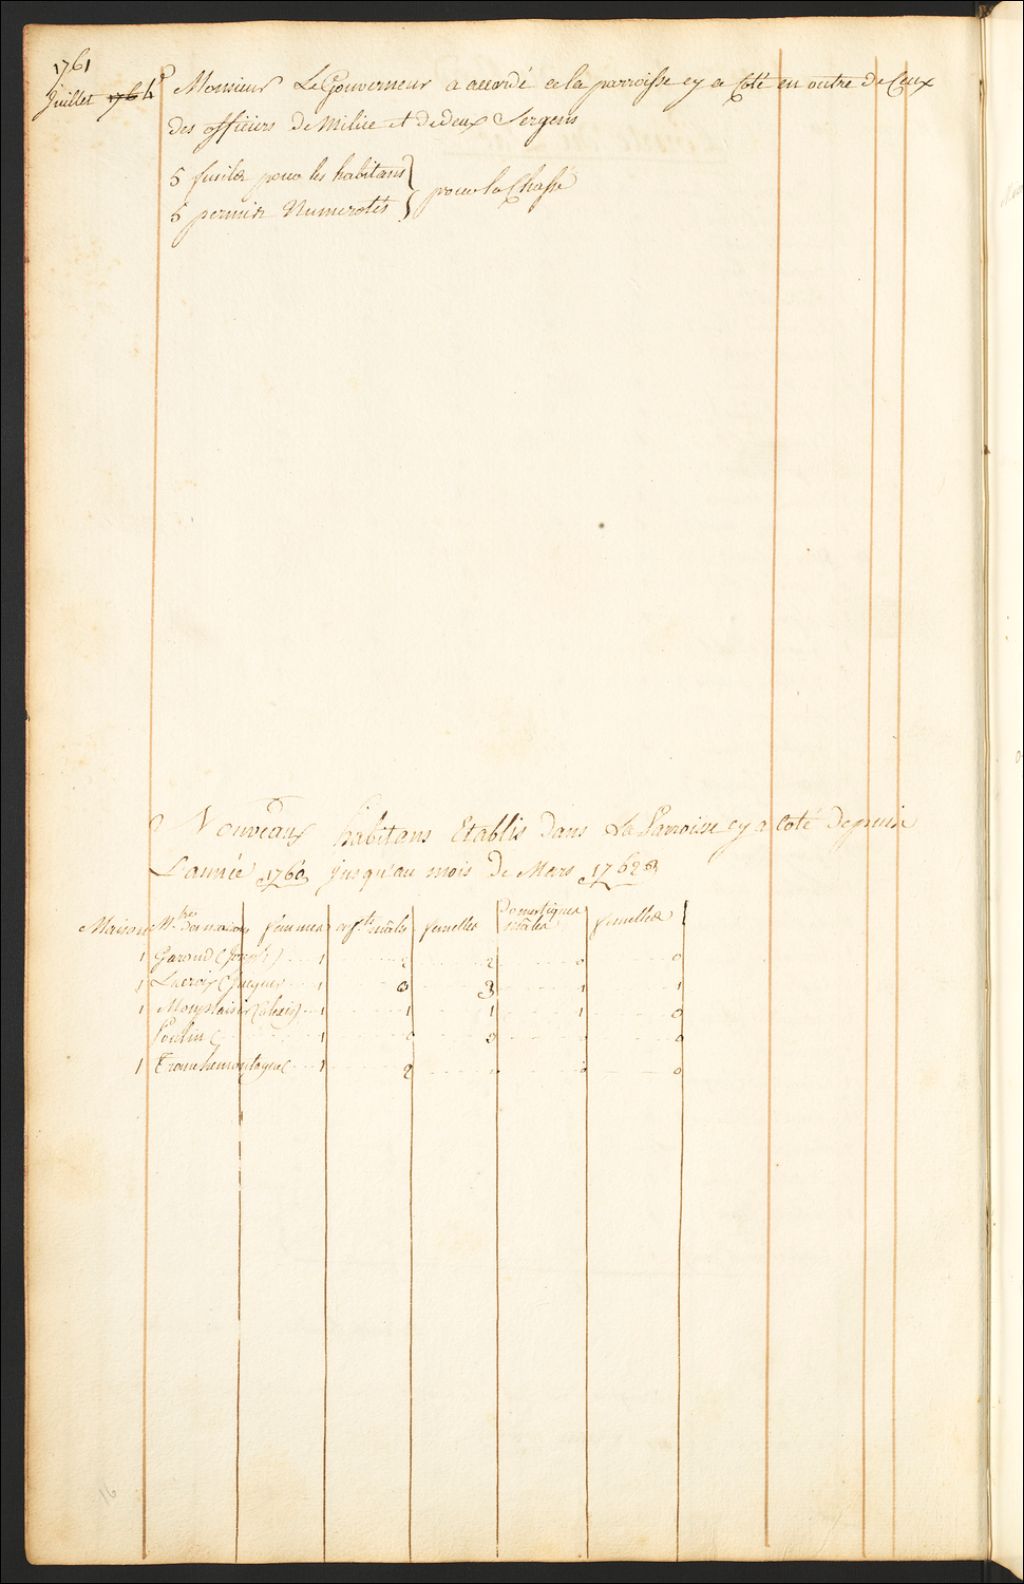 1761
Juillet 1764
Monsieur Le Gouverneur a accordé a la parroisse cy a Coté en outre de Ceux
des officiers de Milice et de deux Sergens
5 fusils pour les habitans
5 permis Numerotés
pour la Chasse
Nouveaux habitans Etablis dans La Parroisse cy a Coté Depuis
L'année 1760 jusqu'au mois de Mars 1762
Maisons Mtres femmes mâles femelles Domestiques mâles femelles
1 Garaud (Joseph) 1 2 2 0 0
1 Lacroix (Jacques 1 0 3 1 1
1 Monplaisir (alexis) 1 1 1 1 0
Poulin ( 1 0 0
1 Tranchemontagne ( 1 2 0
16